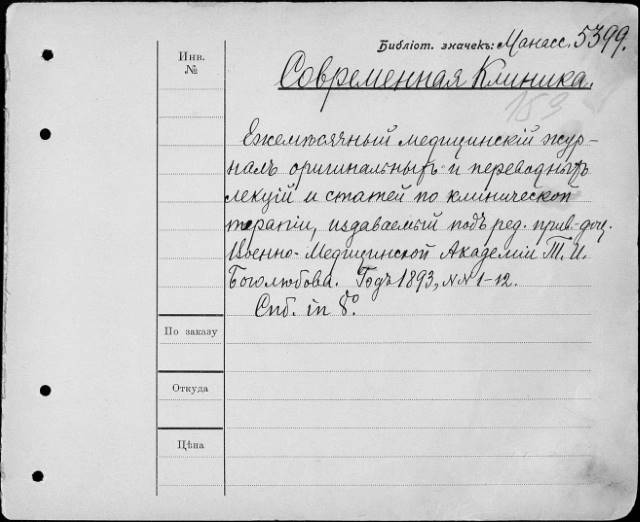 Инв. №
Библіот. значекъ: Манасс. 5399.
Современная Клиника.
159
Ежемѣсячный медицинскій жур-
налъ оригинальныхъ и переводныхъ
лекцій и статей по клинической
терапіи, издаваемый подъ ред. прив.-доц.
Военно-Медицинской Академіи Т. И.
Боголюбова. Годъ 1893, №№ 1-12.
Спб. in 8º.
По заказу
Откуда
Цѣна